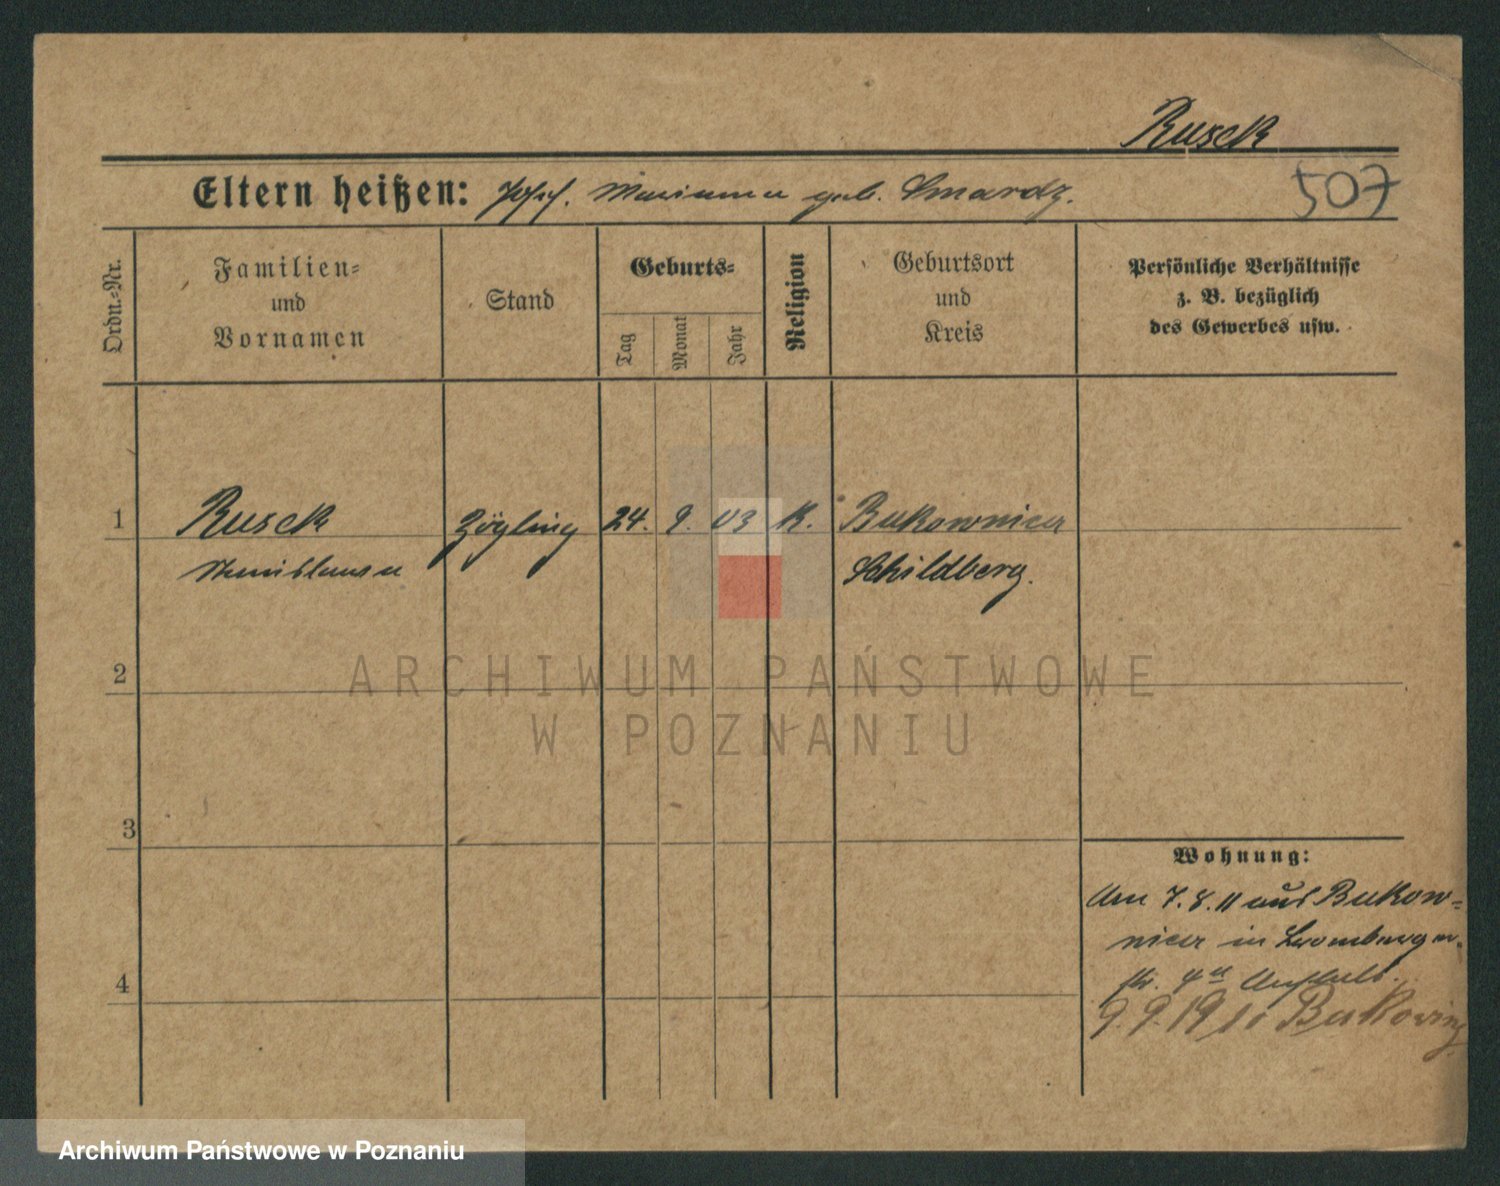 Rusek
Eltern heißen: Josef. Marianna geb. Smardz.
507
Ordn.-Nr.
Familien-
und
Vornamen
Stand
Geburts-
Tag
Monat
Jahr
Religion
Geburtsort
und
Kreis
Persönliche Verhältnisse
z. B. bezüglich
des Gewerbes usw.
1 Rusek Zögling 24. 9. 03 K. Bukownica
Stanislawa Schildberg.
2
ARCHIWUM PAŃSTWOWE
W POZNANIU
3
Wohnung:
Am 7.8.11 aus Bukow-
nica in Bromberger-
str. 4a
4
9.9.19
Archiwum Państwowe w Poznaniu